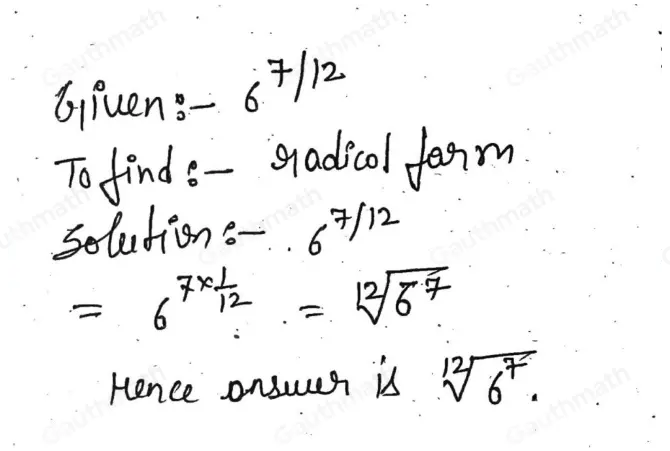 Given:- 6^7/12
To find:- radical form
Solution:- 6^7/12
= 6^7×1/12 = ¹²√6^7
Hence answer is ¹²√6^7.